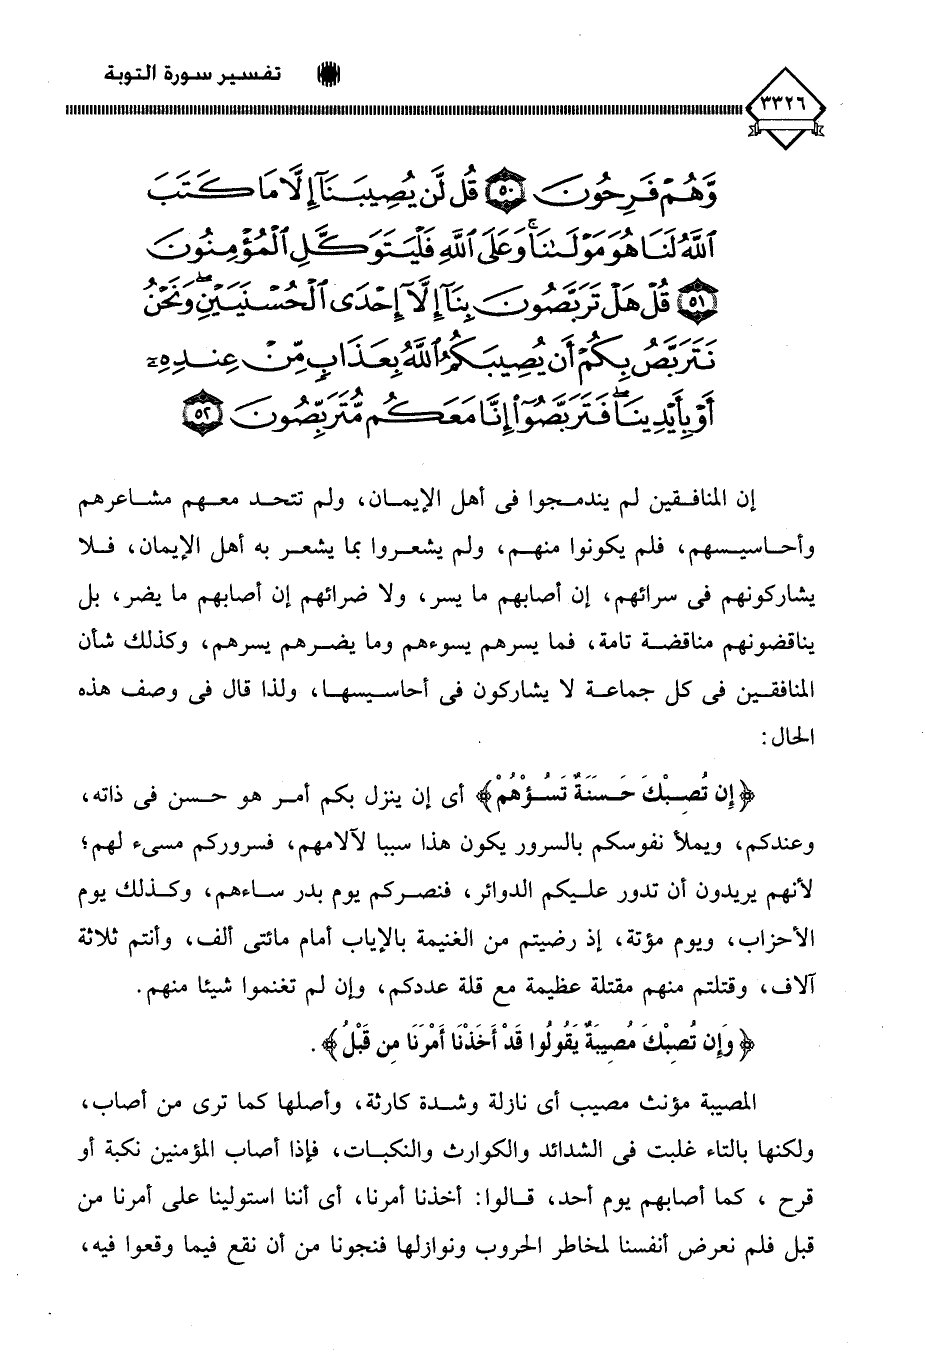 تفسير سورة التوبة
٣٣٢٦
وَّهُمْ فَرِحُونَ ٥٠ قُل لَّن يُصِيبَنَآ إِلَّا مَا كَتَبَ
ٱللَّهُ لَنَا هُوَ مَوْلَىٰنَا ۚ وَعَلَى ٱللَّهِ فَلْيَتَوَكَّلِ ٱلْمُؤْمِنُونَ
٥١ قُلْ هَلْ تَرَبَّصُونَ بِنَآ إِلَّآ إِحْدَى ٱلْحُسْنَيَيْنِ ۖ وَنَحْنُ
نَتَرَبَّصُ بِكُمْ أَن يُصِيبَكُمُ ٱللَّهُ بِعَذَابٍ مِّنْ عِندِهِۦٓ
أَوْ بِأَيْدِينَا ۖ فَتَرَبَّصُوٓا۟ إِنَّا مَعَكُم مُّتَرَبِّصُونَ ٥٢
إن المنافقين لم يندمجوا فى أهل الإيمان، ولم تتحد معهم مشاعرهم
وأحاسيسهم، فلم يكونوا منهم، ولم يشعروا بما يشعر به أهل الإيمان، فلا
يشاركونهم فى سرائهم، إن أصابهم ما يسر، ولا ضرائهم إن أصابهم ما يضر، بل
يناقضونهم مناقضة تامة، فما يسرهم يسوءهم وما يضرهم يسرهم، وكذلك شأن
المنافقين فى كل جماعة لا يشاركون فى أحاسيسها، ولذا قال فى وصف هذه
الحال:
﴿إِن تُصِبْكَ حَسَنَةٌ تَسُؤْهُمْ﴾ أى إن ينزل بكم أمر هو حسن فى ذاته،
وعندكم، ويملأ نفوسكم بالسرور يكون هذا سببا لآلامهم، فسروركم مسىء لهم؛
لأنهم يريدون أن تدور عليكم الدوائر، فنصركم يوم بدر ساءهم، وكذلك يوم
الأحزاب، ويوم مؤتة، إذ رضيتم من الغنيمة بالإياب أمام مائتى ألف، وأنتم ثلاثة
آلاف، وقتلتم منهم مقتلة عظيمة مع قلة عددكم، وإن لم تغنموا شيئا منهم.
﴿وَإِن تُصِبْكَ مُصِيبَةٌ يَقُولُوا قَدْ أَخَذْنَا أَمْرَنَا مِن قَبْلُ﴾.
المصيبة مؤنث مصيب أى نازلة وشدة كارثة، وأصلها كما ترى من أصاب،
ولكنها بالتاء غلبت فى الشدائد والكوارث والنكبات، فإذا أصاب المؤمنين نكبة أو
قرح ، كما أصابهم يوم أحد، قالوا: أخذنا أمرنا، أى أننا استولينا على أمرنا من
قبل فلم نعرض أنفسنا لمخاطر الحروب ونوازلها فنجونا من أن نقع فيما وقعوا فيه،